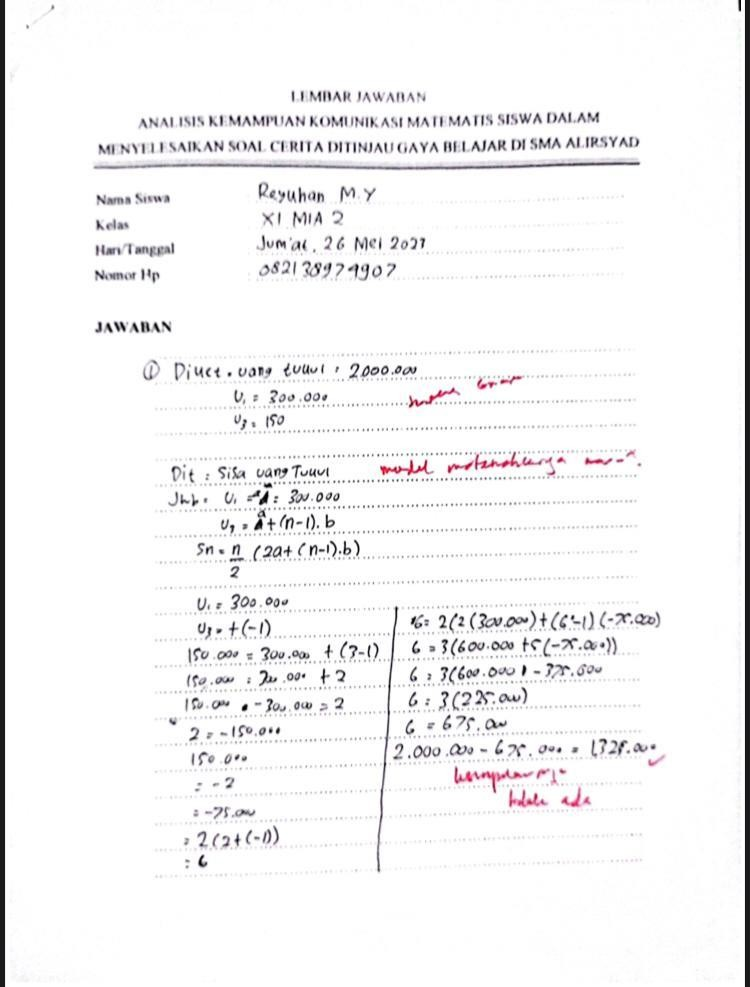 LEMBAR JAWABAN
ANALISIS KEMAMPUAN KOMUNIKASI MATEMATIS SISWA DALAM
MENYELESAIKAN SOAL CERITA DITINJAU GAYA BELAJAR DI SMA ALIRSYAD
Nama Siswa Reyuhan M.Y
Kelas XI MIA 2
Hari/Tanggal Jum'at, 26 Mei 2023
Nomor Hp 082138979907
JAWABAN
① Diket. uang tuuul : 2.000.000
U₁ = 300.000
U₃ = 150
Dit : Sisa uang Tuuul
model
Jwb. U₁ = a = 300.000
a + (n-1).b
Sn = n/2 (2a + (n-1).b)
U₁ = 300.000
U₃ = + (-1)
150.000 = 300.000 + (3-1)
150.000 = 300.000 + 2
150.000 - 300.000 = 2
2 = -150.000
150.000
= -2
= -75.000
= 2(2+(-1))
= 6
6 = 2(2(300.000)+(6-1)(-75.000)
6 = 3(600.000 + 5(-75.000))
6 = 3(600.000) - 375.000
6 = 3(225.000)
6 = 675.000
2.000.000 - 675.000 = 1.325.000
tidak ada